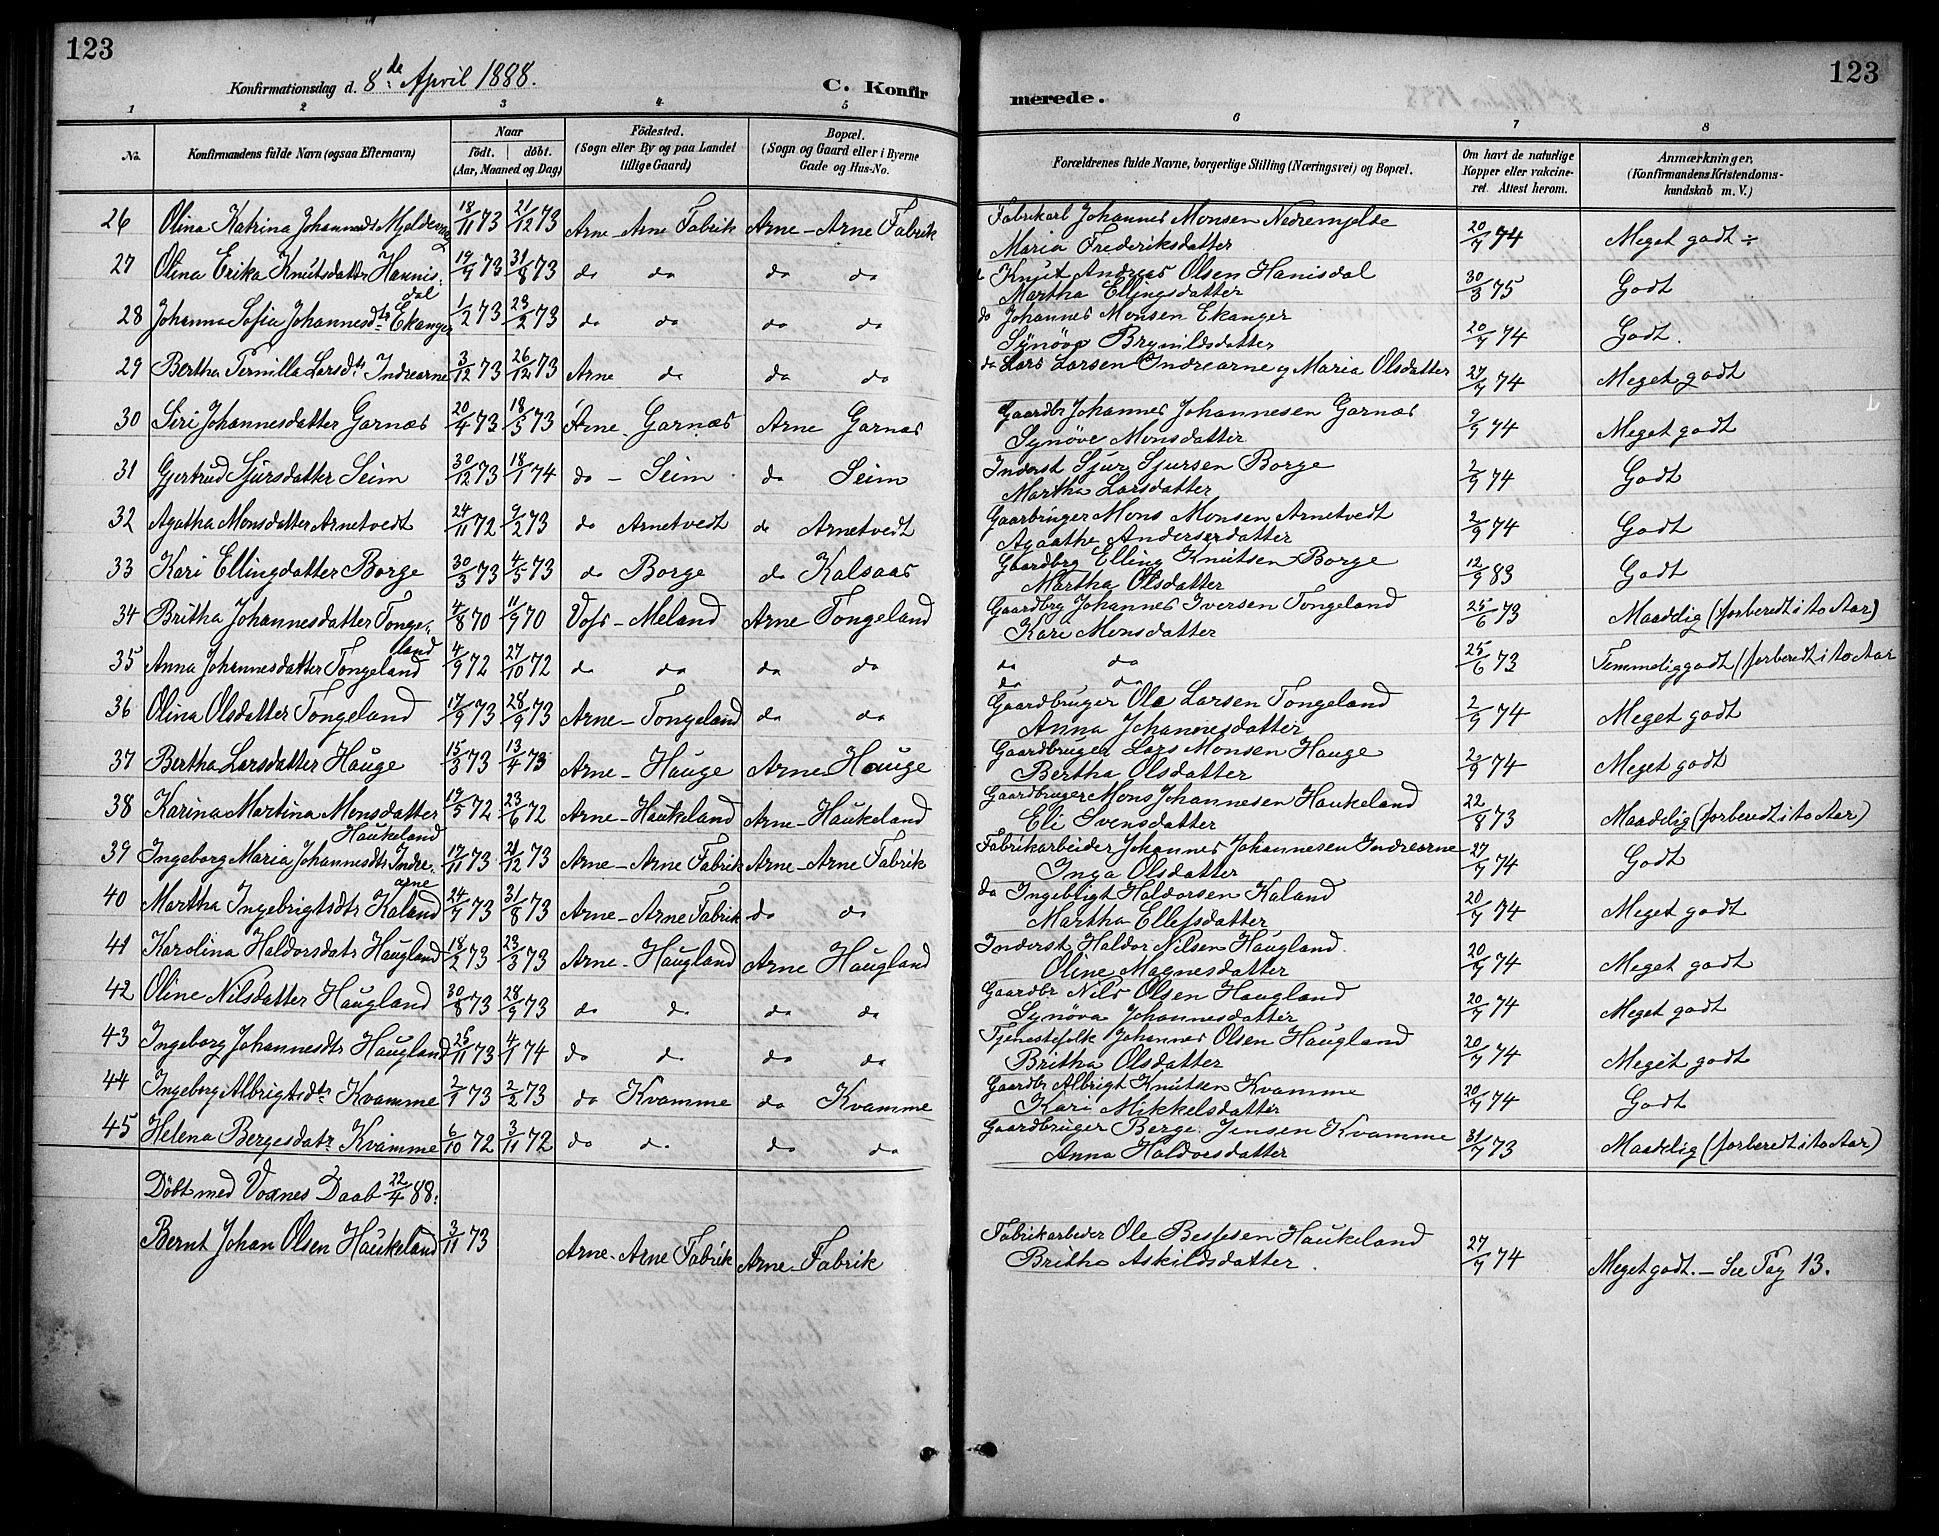 123
Konfirmationsdag d. 8de April 1888.
C. Konfir
1 2 3 4 5
No.
Konfirmandens fulde Navn (ogsaa Efternavn)
Naar
födt. döbt.
(Aar, Maaned og Dag)
Födested.
(Sogn eller By og paa Landet
tillige Gaard)
Bopæl.
(Sogn og Gaard eller i Byerne
Gade og Hus-No.
26 Olina Katrina Johannesdt. 18/11 73 21/12 73 Arne - Arne Fabrik Arne - Arne Fabrik
27 Olina Erika Knutsdatter Hannis- 19/7 73 31/8 73 do do do do
dal
28 Johanna Sofia Johannesdtr Ekanger 1/2 73 23/2 73 do do do do
29 Bertha Pernilla Larsdtr Indrearne 3/12 73 26/12 73 Arne do do do
30 Siri Johannesdatter Garnæs 20/4 73 18/5 73 Arne Garnæs Arne Garnæs
31 Gjertrud Sjursdatter Seim 30/12 73 18/1 74 do - Seim do Seim
32 Agatha Monsdatter Arnetvedt 24/11 72 9/2 73 do Arnetvedt do Arnetvedt
33 Kari Ellingdatter Borge 30/3 73 4/5 73 do Borge do Kalsaas
34 Britha Johannesdatter Tonge- 4/8 70 11/9 70 Voss - Meland Arne Tongeland
land
35 Anna Johannesdatter Tongeland 4/9 72 27/10 72 do do do do
36 Olina Olsdatter Tongeland 17/9 73 28/9 73 Arne - Tongeland do do
37 Bertha Larsdatter Hauge 15/3 73 13/4 73 Arne - Hauge Arne Hauge
38 Karina Martina Monsdatter 19/5 72 23/6 72 Arne - Haukeland Arne - Haukeland
Haukeland
39 Ingeborg Maria Johannesdtr Indre- 17/11 73 21/12 73 Arne - Arne Fabrik Arne - Arne Fabrik
arne
40 Martha Ingebrigtsdtr Kaland 24/7 73 31/8 73 Arne - Arne Fabrik do do
41 Karolina Haldorsdatr Haugland 18/2 73 23/3 73 Arne - Haugland Arne Haugland
42 Oline Nilsdatter Haugland 30/8 73 28/9 73 do do do do
43 Ingeborg Johannesdtr Haugland 25/11 73 4/1 74 do do do do
44 Ingeborg Albrigtsdtr Kvamme 2/1 73 2/2 73 do Kvamme do Kvamme
45 Helena Bergesdatr Kvamme 6/10 72 3/11 72 do do do do
Döbt med Voxnes Daab 22/4 88.
Bernt Johan Olsen Haukeland 3/11 73 Arne - Arne Fabrik Arne - Fabrik
123
merede.
6 7 8
Forældrenes fulde Navne, borgerlige Stilling (Næringsvei) og Bopæl.
Om havt de naturlige
Kopper eller vakcine-
ret. Attest herom.
Anmærkninger,
(Konfirmandens Kristendoms-
kundskab m. V.)
Fabrikarb Johannes Monsen Nedremjelde
Maria Frederiksdatter 20/7 74 Meget godt ÷
do Knut Andreas Olsen Hanisdal
Martha Ellingsdatter 30/3 75 Godt
do Johannes Monsen Ekanger
Synöve Brynildsdatter 20/7 74 Godt.
do Lars Larsen Indrearne og Maria Olsdatter 27/7 74 Meget godt
Gaardbr Johannes Johannesen Garnæs
Synöve Monsdatter 2/9 74 Meget godt
Inderst Sjur Sjursen Borge
Martha Larsdatter 2/9 74 Godt
Gaarbruger Mons Monsen Arnetvedt
Agaathe Andersdatter 2/9 74 Godt
Gaardbrg Elling Knutsen Borge
Martha Olsdatter 12/9 83 Godt
Gaardbrg Johannes Iversen Tongeland
Kari Monsdatter 25/6 73 Maadelig (forberedt i to Aar)
do do
do do 25/6 73 Temmelig godt (forberedt i to Aar
Gaardbruger Ole Larsen Tongeland
Anna Johannesdatter 2/9 74 Meget godt
Gaardbruger Lars Monsen Hauge
Bertha Olsdatter 2/9 74 Meget godt
Gaardbruger Mons Johannesen Haukeland
Eli Ivensdatter 22/8 73 Maadelig (forberedt i to Aar)
Fabrikarbeider Johannes Johannesen Indrearne
Inga Olsdatter 27/7 74 Godt
do Ingebrigt Haldorsen Kaland
Martha Ellefsdatter 20/7 74 Meget godt
Inderst Haldor Nilsen Haugland
Oline Magnesdatter 20/7 74 Meget godt
Gaardbr Nils Olsen Haugland
Synöva Johannesdatter 20/7 74 Meget godt
Tjenestefolk Johannes Olsen Haugland
Britha Olsdatter 20/7 74 Meget godt
Gaardbr Albrigt Knutsen Kvamme
Kari Mikkelsdatter 20/7 74 Godt
Gaardbruger Berge Jensen Kvamme
Anna Haldorsdatter 31/7 73 Maadelig (forberedt i to Aar)
Fabrikarbeder Ole Bessesen Haukeland
Britha Askildsdatter 27/7 74 Meget godt. - See Pag 13.